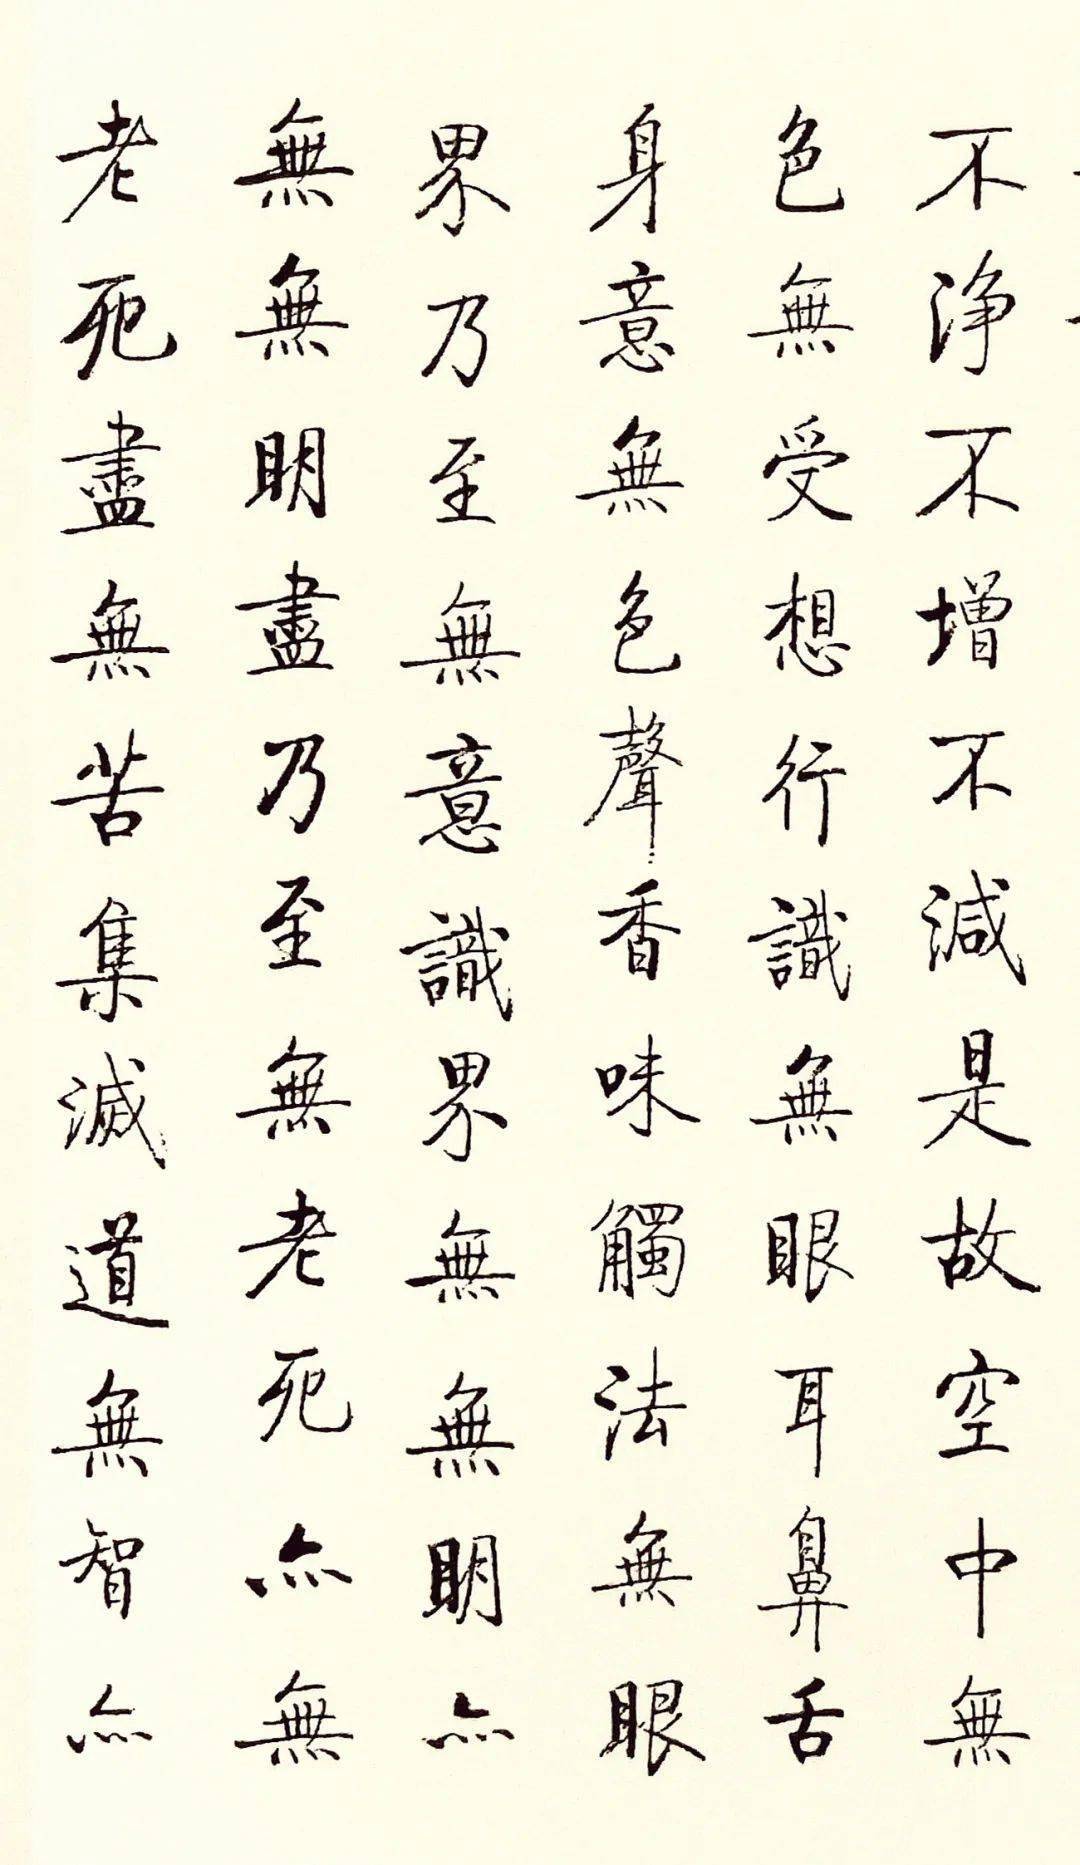 不淨不增不減是故空中無
色無受想行識無眼耳鼻舌
身意無色聲香味觸法無眼
界乃至無意識界無無明亦
無無明盡乃至無老死亦無
老死盡無苦集滅道無智亦